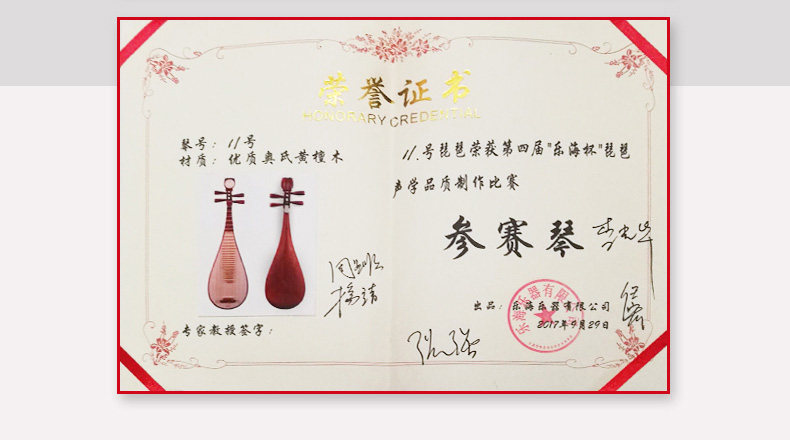 荣誉证书
HONORARY CREDENTIAL
琴号：11号
材质：优质奥氏黄檀木
专家教授签字：
11.号琵琶荣获第四届"乐海杯"琵琶
声学品质制作比赛
参赛琴
出品：乐海乐器有限公司
2017年9月29日